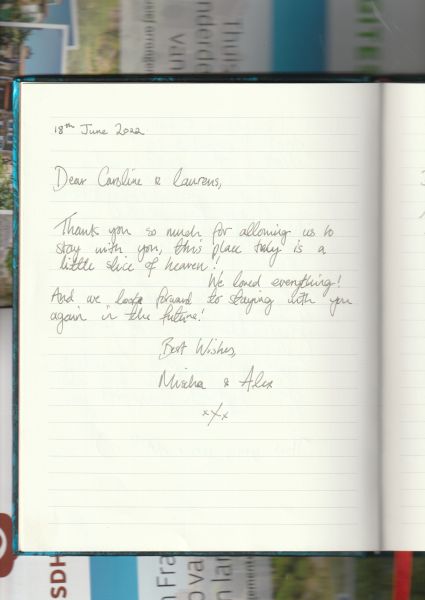 18th June 2022
Dear Caroline & Laurens,
Thank you so much for allowing us to
stay with you, this place truly is a
little slice of heaven!
We loved everything!
And we look forward to staying with you
again in the future!
Best Wishes,
Mischa & Alex
xXx